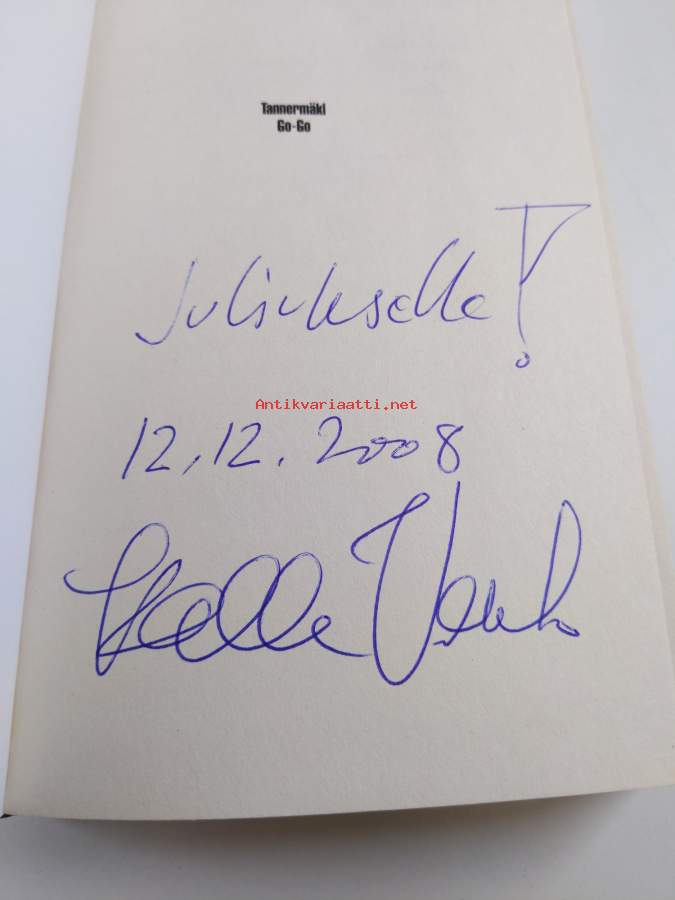 Tannermäki
Go-Go
Juliukselle!
Antikvariaatti.net
12.12.2008
Kalle Veirto